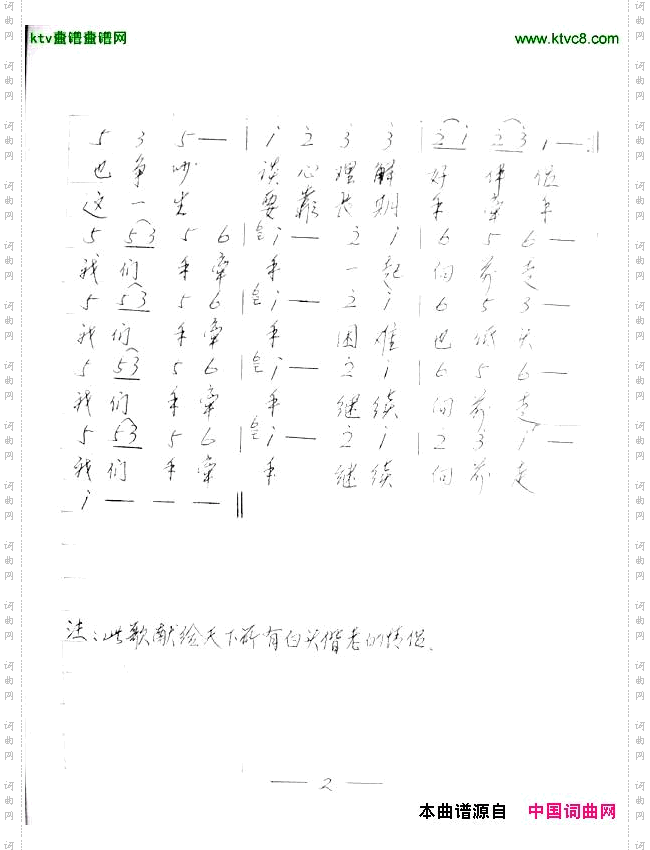 ktv盡镨盡镨网 www.ktvc8.com
5 3 5— | i 2 3 3 | 2i 23 1—
也争吵 谈心理解 好伴侣
这一生 要靠长期手牵手
5 53 5 6 | i— 2 i | 6 5 6—
我们手牵手 一起向前走
5 53 5 6 | i— 2 i | 6 5 3—
我们手牵手 困难也低头
5 53 5 6 | i— 2 i | 6 5 6—
我们手牵手 继续向前走
5 53 5 6 | i— 2 i | 2 3 i—
我们手牵手 继续向前走
i — — — ‖
注:此歌献给天下所有白头偕老的情侣.
— 2 —
本曲谱源自 中国词曲网
词曲网